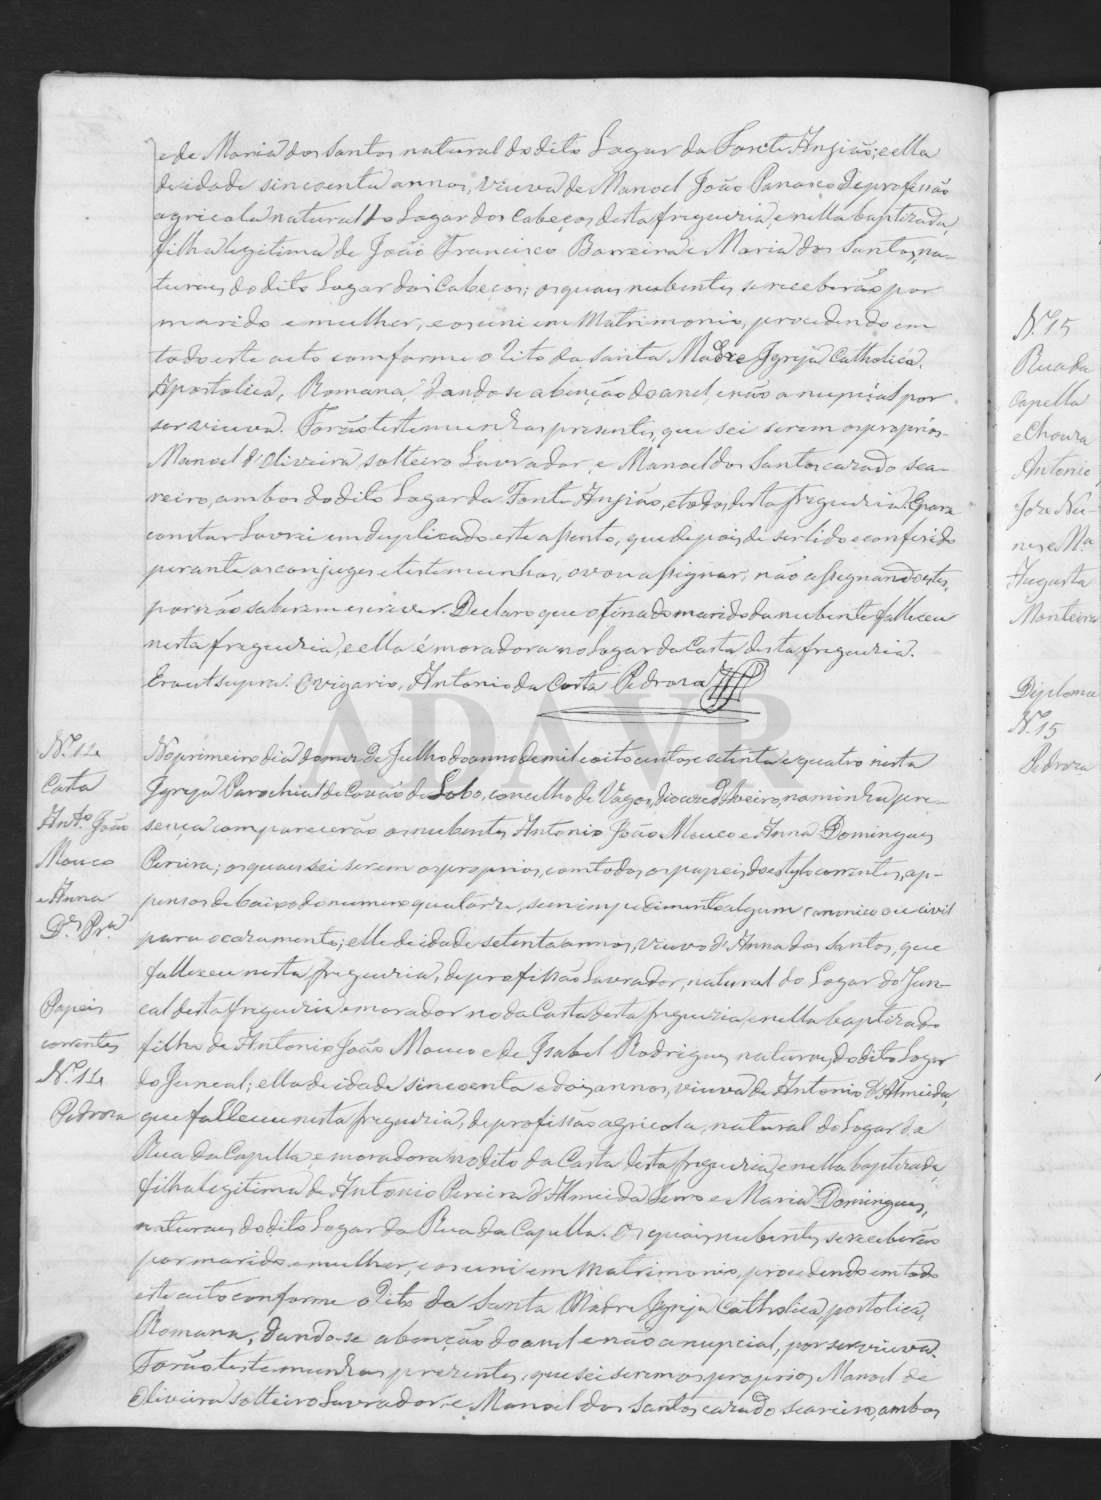 e de Maria dos Santos natural do dito Logar da Fonte Angião; e ella
de idade sincoenta annos, viuva de Manoel João Panasco, de profissão
agricola natural do Logar dos Cabeços desta freguezia, e nella baptizada,
filha legitima de João Francisco Barreira e Maria dos Santos, na-
turaes do dito Logar dos Cabeços; os quaes nubentes se receberão por
marido e mulher, e os uni em Matrimonio, procedendo em
todo este acto comforme o Rito da Santa Madre Igreja Catholica,
Apostolica, Romana, dando-se a benção do anel e não a nupcial por
ser viuva. Forão testemunhas presentes, que sei serem os proprios
Manoel d'Oliveira solteiro Lavrador, e Manoel dos Santos cazado sea-
reiro, ambos do dito Lugar da Fonte Angião, e todos desta freguezia. E para
constar Lavrei em duplicado este assento, que depois de ser lido e conferido
perante os conjuges e testemunhas, o vou assignar, não assignando estes,
por não saberem escrever. Declaro que o finado marido da nubente falleceu
nesta freguezia, e ella é moradora no Logar da Costa desta freguezia.
Era ut supra. O vigario, Antonio da Costa Pedroza
Nº 14
Costa
Antº João
Mouco
e Anna
Dˢ Prª
Papeis
correntes
Nº 14
Pedroza
No primeiro dia do mez de Julho do anno de mil e oito centos e setenta e quatro nesta
Igreja Parochial de Covão do Lobo, concelho de Vagos, diocese d'Aveiro, na minha pre-
sença comparecerão os nubentes Antonio João Mouco e Anna Domingues
Pereira; os quaes sei serem os proprios, com todos os papeis do estylo correntes, ap-
pensos debaixo do numero quatorze, sem impedimento algum canonico ou civil
para o cazamento; elle de idade setenta annos, viuvo d'Anna dos Santos, que
falleceu nesta freguezia, de profissão Lavrador, natural do Logar do Jun-
cal desta freguezia e morador no da Costa desta freguezia, e nella baptizado
filho de Antonio João Mouco e de Isabel Rodrigues naturaes do dito Logar
do Juncal; ella de idade sincoenta e dois annos, viuva de Antonio d'Almeida,
que falleceu nesta freguezia, de profissão agricola, natural do Logar da
Rua da Capella, e moradora no dito da Costa desta freguezia, e nella baptizada,
filha legitima de Antonio Pereira d'Almeida Serro e Maria Domingues,
naturaes do dito Logar da Rua da Capella. Os quais nubentes se receberão
por marido e mulher, e os uni em Matrimonio, procedendo em todo
este acto conforme o Rito da Santa Madre Igreja Catholica, postolica,
Romana, dando-se a benção do anel e não a nupcial, por ser viuva.
Forão testemunhas prezentes, que sei serem os proprios Manoel de
Oliveira solteiro Lavrador, e Manoel dos Santos cazado seareiro, ambos
Nº 15
Rua da
Capella
e Choura
Antonio
Joze Nu-
nes e Mª
Augusta
Monteiro
Diploma
Nº 15
Pedroza
ADAVR